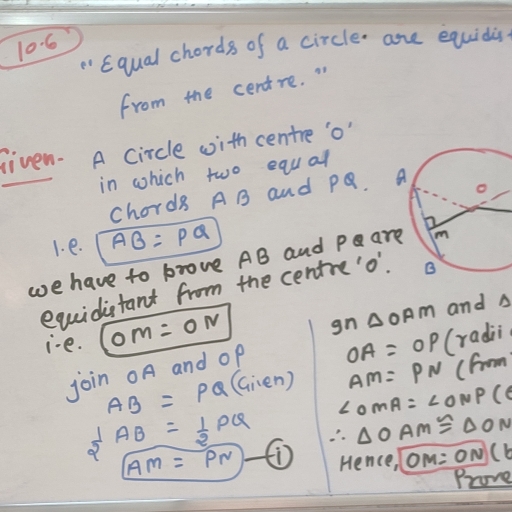 10.6
"Equal chords of a circle. are equidist
from the centre."
Given- A circle with centre 'O'
in which two equal
chords AB and PQ.
i.e. AB = PQ
we have to prove AB and PQ are
equidistant from the centre 'O'.
i.e. OM = ON
join OA and OP
AB = PQ (Given)
½ AB = ½ PQ
AM = PN —(i)
A
O
M
B
In △OAM and △
OA = OP (radii
AM = PN (from
∠OMA = ∠ONP (
∴ △OAM ≅ △ON
Hence, OM = ON (b
Prove